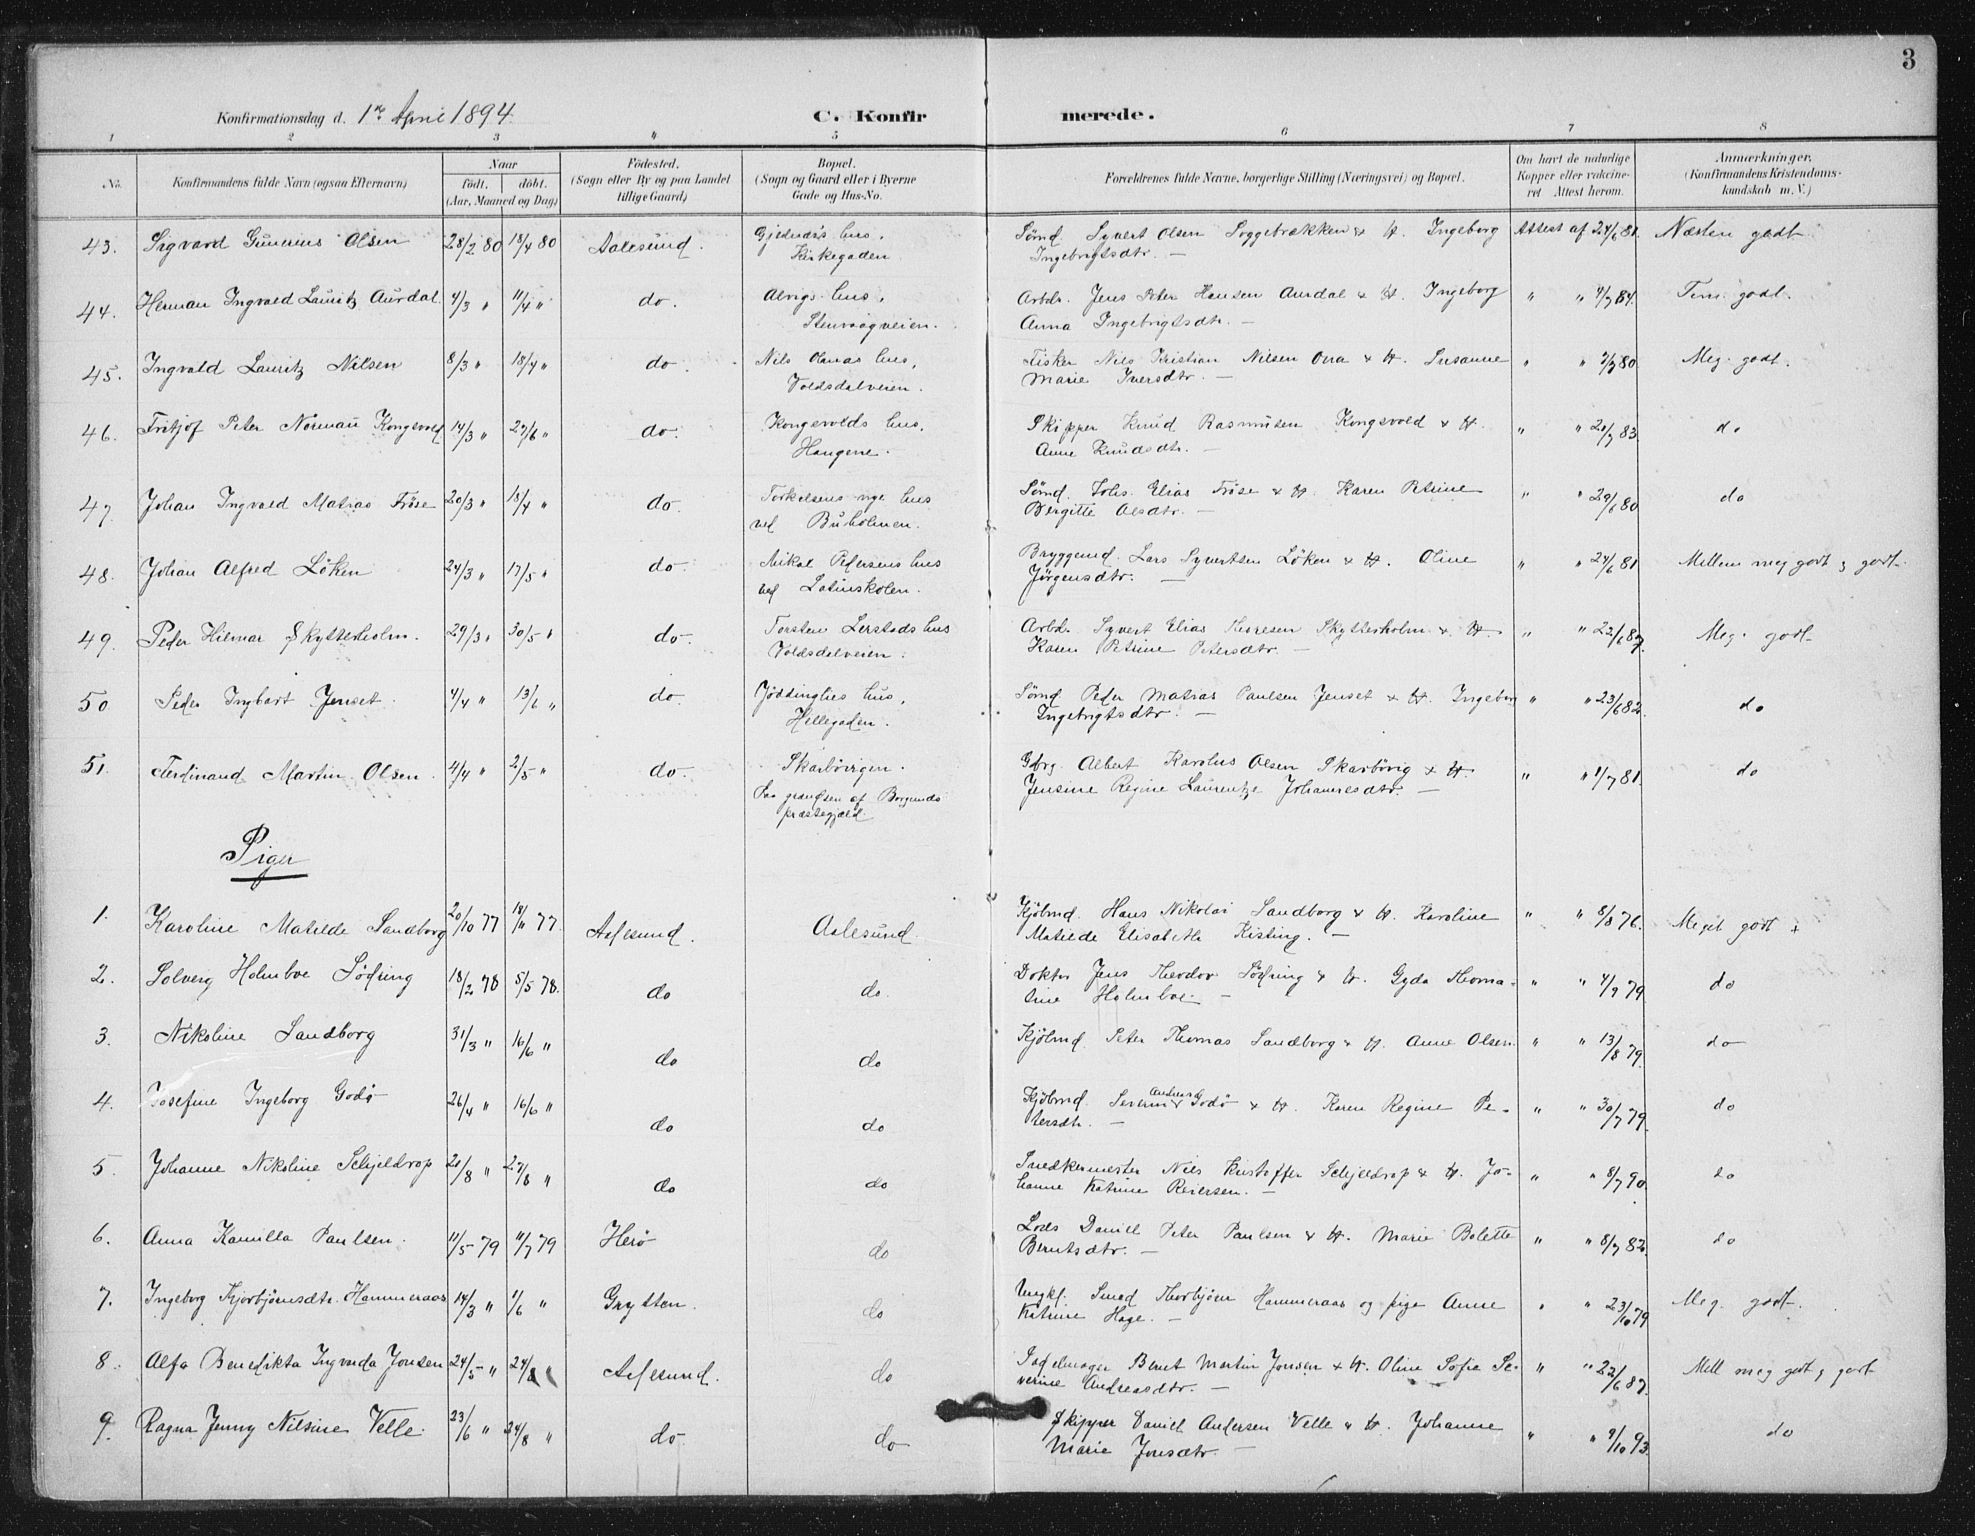 3
Konfirmationsdag d. 1ste April 1894. C. Konfirmerede.
1 2 3 " 5 6 7 8
No. Konfirmandens fulde Navn (ogsaa Efternavn) Naar födt. döbt. (Aar, Maaned og Dag) Födested. (Sogn eller By og paa Landet tillige Gaard) Bopæl. (Sogn og Gaard eller i Byerne Gade og Hus-No. Forældrenes fulde Navne, borgerlige Stilling (Næringsvei) og Bopæl. Om havt de naturlige Kopper eller vakcineret Attest herom. Anmærkninger. (Konfirmandens Kristendomskundskab m. V.)
43. Sigvard Gunerius Olsen 28/2 80 18/4 80 Aalesund. Gjedneds hus, Kirkegaden Sömd. Syvert Olsen Soggebrækken & H. Ingeborg Ingebrigtsdtr. — Attest af 24/6 81. Næsten godt
44. Herman Ingvald Lauritz Aurdal 4/3 " 11/4 " do. Alvigs hus, Stenvaagveien. Arbdr. Jens Peter Hansen Aurdal & H. Ingeborg Anna Ingebrigtsdtr. — " " 4/7 84. Tem. godt.
45. Ingvald Lauritz Nilsen 8/3 " 18/4 " do. Nils Onas hus, Voldsdalveien. Fisker Nils Kristian Nilsen Ona & H. Susanne Marie Iversdtr. — " " 80. Meg. godt.
46. Fritjof Peter Norman Kongsvold 14/3 " 27/6 " do. Kongsvolds hus, Haugene. Skipper Knud Rasmusen Kongsvold & H. Anne Knudsdtr. — " " 20/7 83. do
47. Johan Ingvald Matias Fröse 20/3 " 18/4 " do. Torkelsens nye hus ved Buholmen. Sömd. Johs. Elias Fröse & H. Karen Petrine Bergitte Olsdtr. — " " 29/6 80 do
48. Johan Alfred Löken 24/3 " 17/5 " do. Mikal Pedersens hus ved Latinskolen. Bryggemd. Lars Syvertsen Löken & H. Oline Jörgensdtr. — " " 24/6 81 Mellem meg godt & godt.
49. Peder Hilmar Skytterholm. 29/3 " 30/5 " do. Torsten Lerstads hus Voldsdalveien. Arbdr. Syvert Elias Thoresen Skytterholm & H. Karen Petrine Petersdtr. — " " 22/6 87. Meg. godt
50 Peder Ingbart Jenset. 4/4 " 13/6 " do. Jöddinglies hus, Hellegaden. Sömd. Peder Matias Paulsen Jenset & H. Ingeborg Ingebrigtsdtr. — " " 23/6 82. do
51. Ferdinand Martin Olsen. 4/4 " 2/5 " do. Skarbövigen. Paa grændsen af Borgunds præstegjæld. Gbrg. Albert Karolus Olsen Skarbövig & H. Jensine Regine Laurentze Johannesdtr. — " " 1/7 81. do
Piger
1. Karoline Matilde Sandborg 20/10 77 18/11 77. Aalesund. Aalesund. Kjöbmd. Hans Nikolai Sandborg & H. Karoline Matilde Elisabeth Kisting. — " " 8/8 76. Meget godt +
2. Solveig Holmboe Södring 18/2 78 5/5 78. do do. Doktor Jens Theodor Södring & H. Gyda Thomatine Holmboe. — " " 4/9 79. do
3. Nikoline Sandborg 31/3 " 16/6 " do do Kjöbmd. Peter Thomas Sandborg & H. Anne Olsen. " " 13/8 79. do
4. Josefine Ingeborg Godö 26/4 " 16/6 " do do Kjöbmd. Severin Andreas Godö & H. Karen Regine Petersdtr. — " " 30/7 79. do
5. Johanne Nikoline Schjeldrop 20/8 " 27/8 " do do Snedkermester Nils Kristoffer Schjeldrop & H. Johanne Katrine Reiersen. — " " 8/7 90. do
6. Anna Kamilla Paulsen. 11/5 79 11/7 79 Herö do Lods Daniel Peter Paulsen & H. Marie Bolette Berntsdtr. — " " 8/7 82. do
7. Ingeborg Thorbjörnsdtr. Hammeraas 14/3 " 1/6 " Grytten. do Ungkl. Smed Thorbjörn Hammeraas og pige Anne Katrine Hage. — " " 23/10 79 Meg. godt.
8. Alfa Benedikta Ingvarda Jonsen 24/5 " 24/8 " Aalesund. do Sadelmager Bernt Martin Jonsen & H. Oline Sofia Severine Andreasdtr. — " " 22/6 87. Mell meg godt & godt
9. Ragna Jenny Nilsine Velle. 23/6 " 24/8 " do. do Skipper Daniel Andersen Velle & H. Johanne Marie Jonsdtr. — " " 9/10 93. do